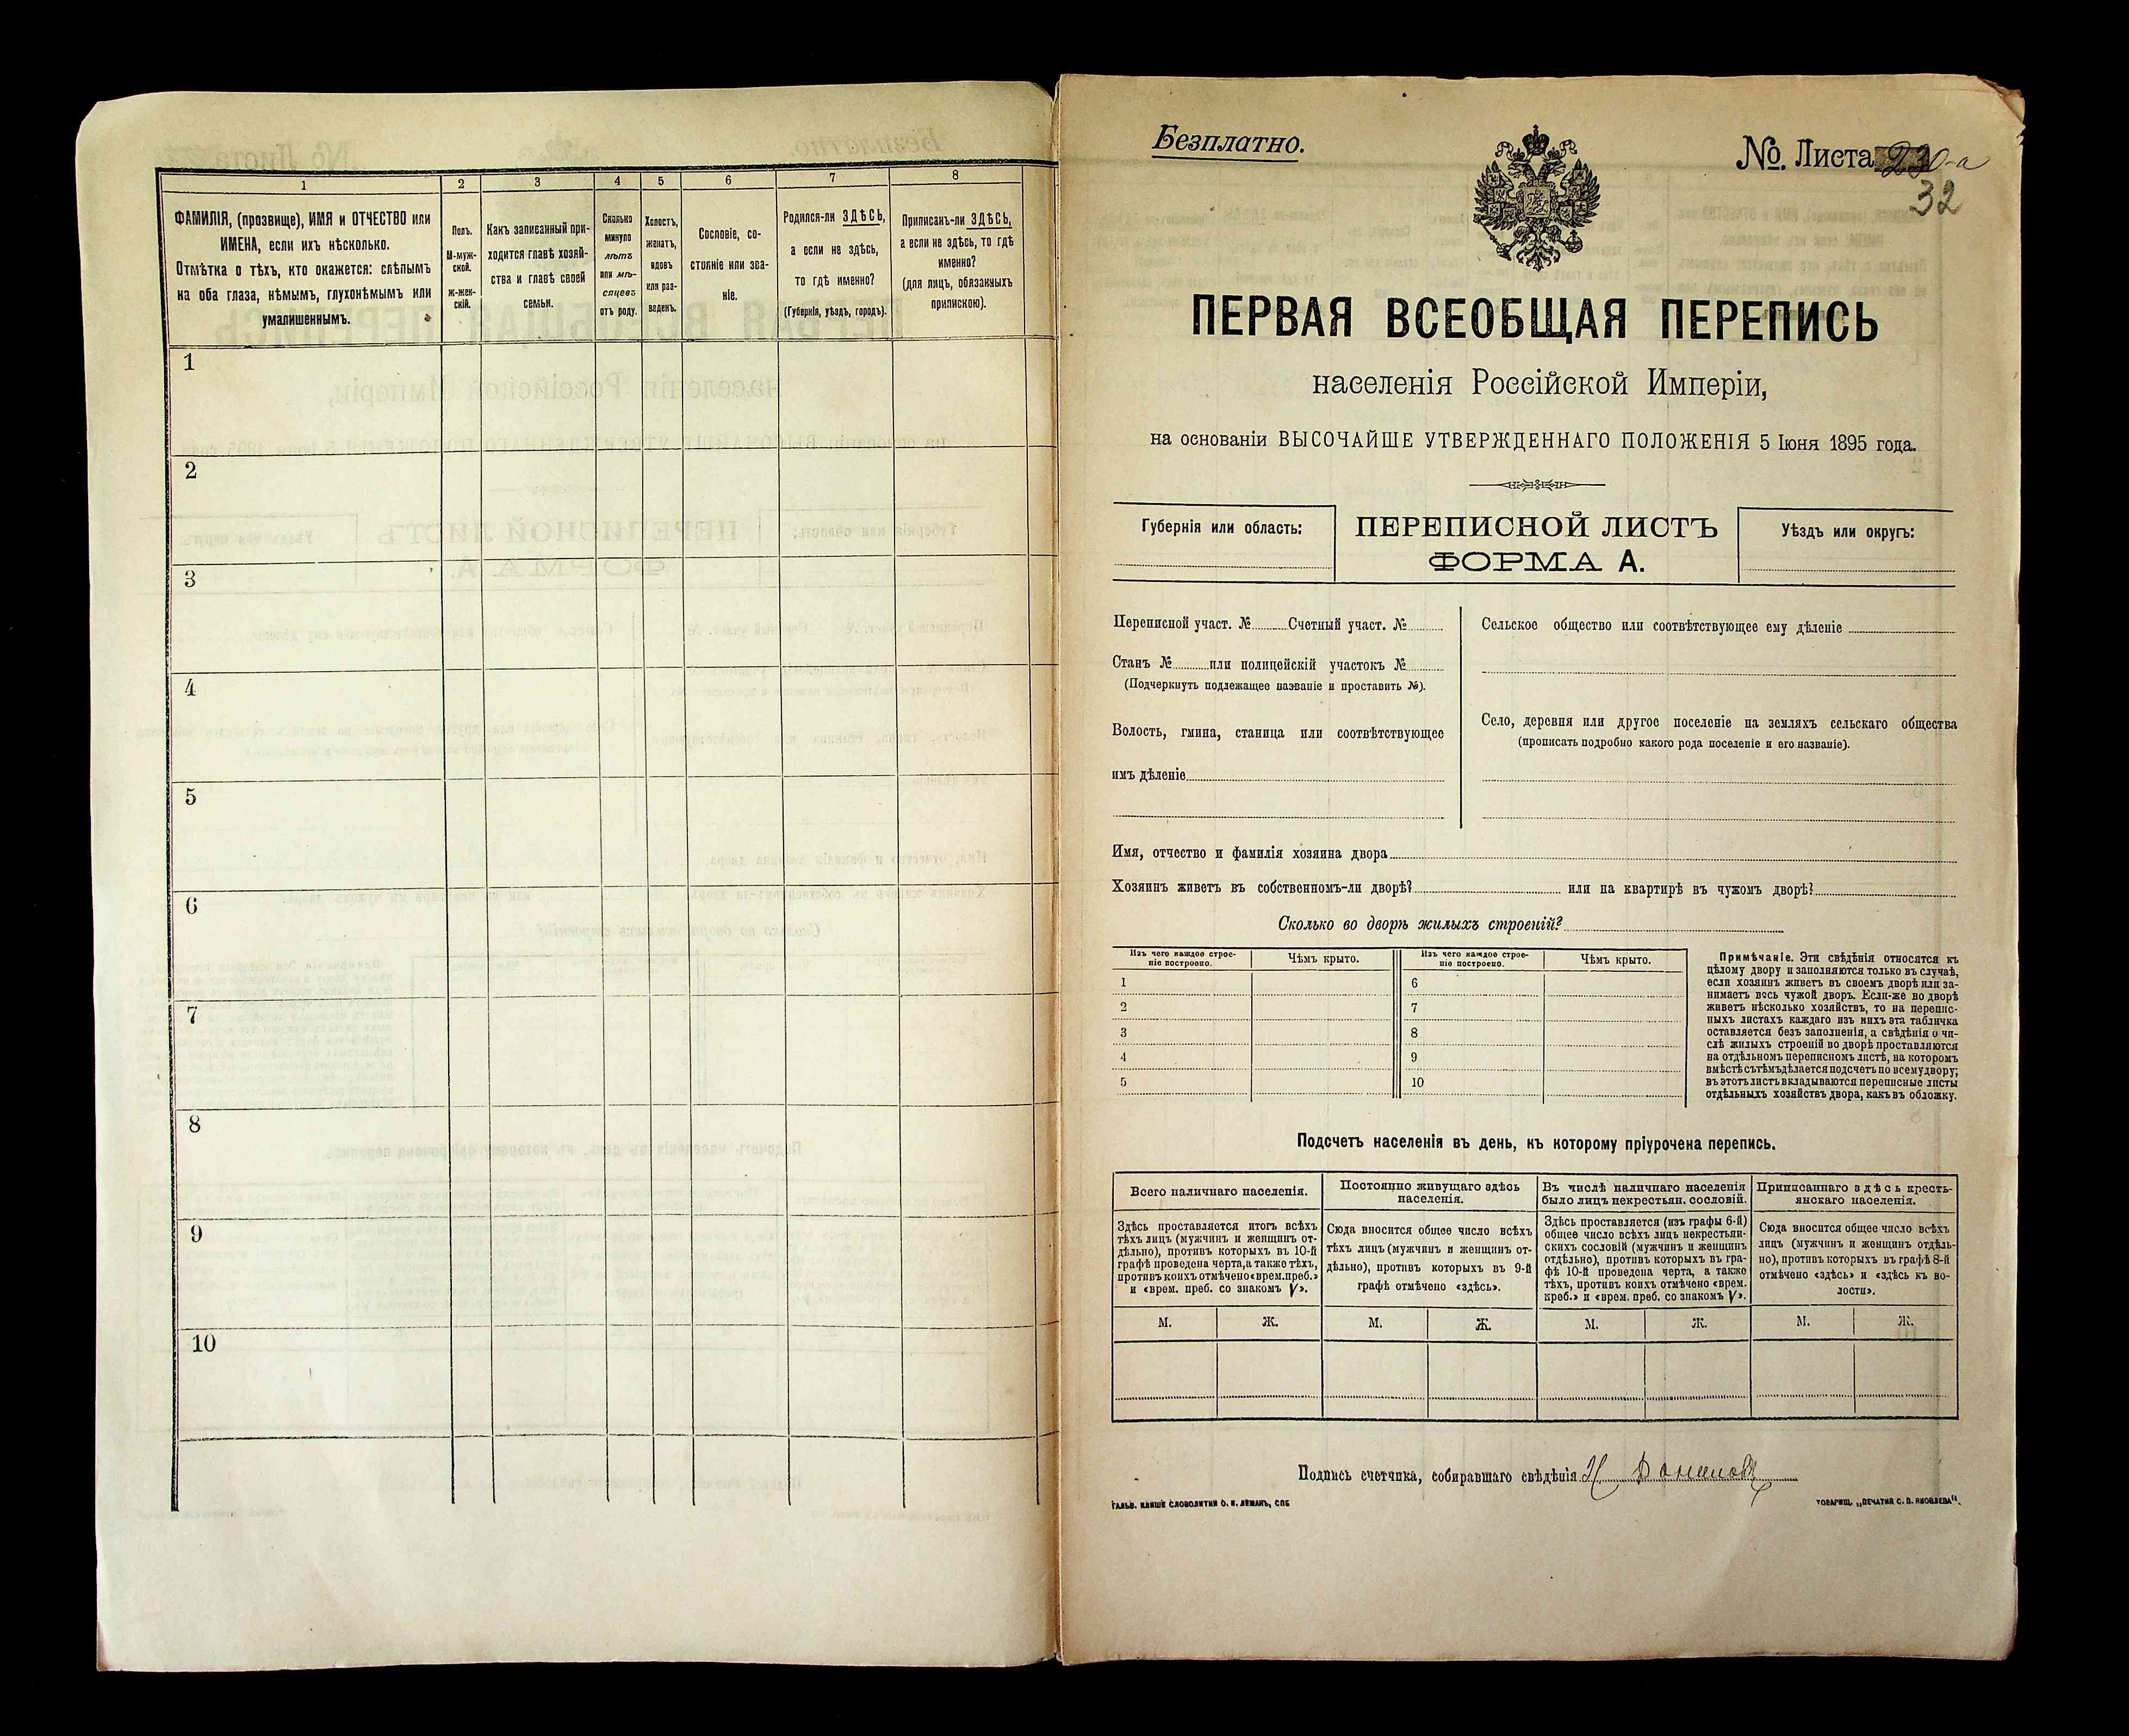 1
2
3
4
5
6
7
8
ФАМИЛІЯ, (прозвище), ИМЯ и ОТЧЕСТВО или
ИМЕНА, если ихъ нѣсколько.
Отмѣтка о тѣхъ, кто окажется: слѣпымъ
на оба глаза, нѣмымъ, глухонѣмымъ или
умалишеннымъ.
Полъ.
М-муж-
ской.
ж-жен-
скій.
Какъ записанный при-
ходится главѣ хозяй-
ства и главѣ своей
семьи.
Сколько
минуло
лѣтъ
или мѣ-
сяцевъ
отъ роду.
Холостъ,
женатъ,
вдовъ
или раз-
веденъ.
Сословіе, со-
стояніе или зва-
ніе.
Родился-ли ЗДѢСЬ,
а если не здѣсь,
то гдѣ именно?
(Губернія, уѣздъ, городъ).
Приписанъ-ли ЗДѢСЬ,
а если не здѣсь, то гдѣ
именно?
(для лицъ, обязанныхъ
припискою).
1
2
3
4
5
6
7
8
9
10
Безплатно.
№. Листа
32
ПЕРВАЯ ВСЕОБЩАЯ ПЕРЕПИСЬ
населенія Россійской Имперіи,
на основаніи ВЫСОЧАЙШЕ УТВЕРЖДЕННАГО ПОЛОЖЕНІЯ 5 Іюня 1895 года.
Губернія или область:
ПЕРЕПИСНОЙ ЛИСТЪ
ФОРМА А.
Уѣздъ или округъ:
Переписной участ. № Счетный участ. №
Станъ № или полицейскій участокъ №
(Подчеркнуть подлежащее названіе и проставить №).
Волость, гмина, станица или соотвѣтствующее
имъ дѣленіе
Сельское общество или соотвѣтствующее ему дѣленіе
Село, деревня или другое поселеніе на земляхъ сельскаго общества
(прописать подробно какого рода поселеніе и его названіе).
Имя, отчество и фамилія хозяина двора
Хозяинъ живетъ въ собственномъ-ли дворѣ? или на квартирѣ въ чужомъ дворѣ?
Сколько во дворѣ жилыхъ строеній?
Изъ чего каждое строе-
ніе построено.
Чѣмъ крыто.
Изъ чего каждое строе-
ніе построено.
Чѣмъ крыто.
1 6
2 7
3 8
4 9
5 10
Примѣчаніе. Эти свѣдѣнія относятся къ
цѣлому двору и заполняются только въ случаѣ,
если хозяинъ живетъ въ своемъ дворѣ или за-
нимаетъ весь чужой дворъ. Если-же во дворѣ
живетъ нѣсколько хозяйствъ, то на перепис-
ныхъ листахъ каждаго изъ нихъ эта табличка
оставляется безъ заполненія, а свѣдѣнія о чи-
слѣ жилыхъ строеній во дворѣ проставляются
на отдѣльномъ переписномъ листѣ, на которомъ
вмѣстѣ съ тѣмъ дѣлается подсчетъ по всему двору;
въ этотъ листъ вкладываются переписные листы
отдѣльныхъ хозяйствъ двора, какъ въ обложку.
Подсчетъ населенія въ день, къ которому пріурочена перепись.
Всего наличнаго населенія.
Здѣсь проставляется итогъ всѣхъ
тѣхъ лицъ (мужчинъ и женщинъ от-
дѣльно), противъ которыхъ въ 10-й
графѣ проведена черта, а также тѣхъ,
противъ коихъ отмѣчено «врем. преб.»
и «врем. преб. со знакомъ V».
Постоянно живущаго здѣсь
населенія.
Сюда вносится общее число всѣхъ
тѣхъ лицъ (мужчинъ и женщинъ от-
дѣльно), противъ которыхъ въ 9-й
графѣ отмѣчено «здѣсь».
Въ числѣ наличнаго населенія
было лицъ некрестьян. сословій.
Здѣсь проставляется (изъ графы 6-й)
общее число всѣхъ лицъ некрестьян-
скихъ сословій (мужчинъ и женщинъ
отдѣльно), противъ которыхъ въ гра-
фѣ 10-й проведена черта, а также
тѣхъ, противъ коихъ отмѣчено «врем.
преб.» и «врем. преб. со знакомъ V».
Приписаннаго здѣсь кресть-
янскаго населенія.
Сюда вносится общее число всѣхъ
лицъ (мужчинъ и женщинъ отдѣль-
но), противъ которыхъ въ графѣ 8-й
отмѣчено «здѣсь» и «здѣсь къ во-
лости».
М. Ж. М. Ж. М. Ж. М. Ж.
Подпись счетчика, собиравшаго свѣдѣнія
ГАЛЬВ. КЛИШЕ СЛОВОЛИТНИ О. И. ЛЕМАНЪ, СПБ
ТОВАРИЩ. „ПЕЧАТНЯ С. П. ЯКОВЛЕВА".